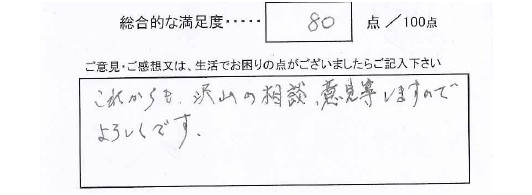 総合的な満足度‥‥‥ 80 点 ／100点
ご意見・ご感想又は、生活でお困りの点がございましたらご記入下さい
これからも、沢山の相談、意見等しますので
よろしくです。